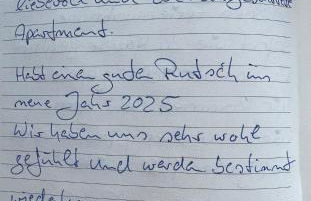 liebevoll und
Apartment.
Habt einen guden Rutsch ins
neue Jahr 2025
Wir haben uns sehr wohl
gefühlt und werden bestimmt